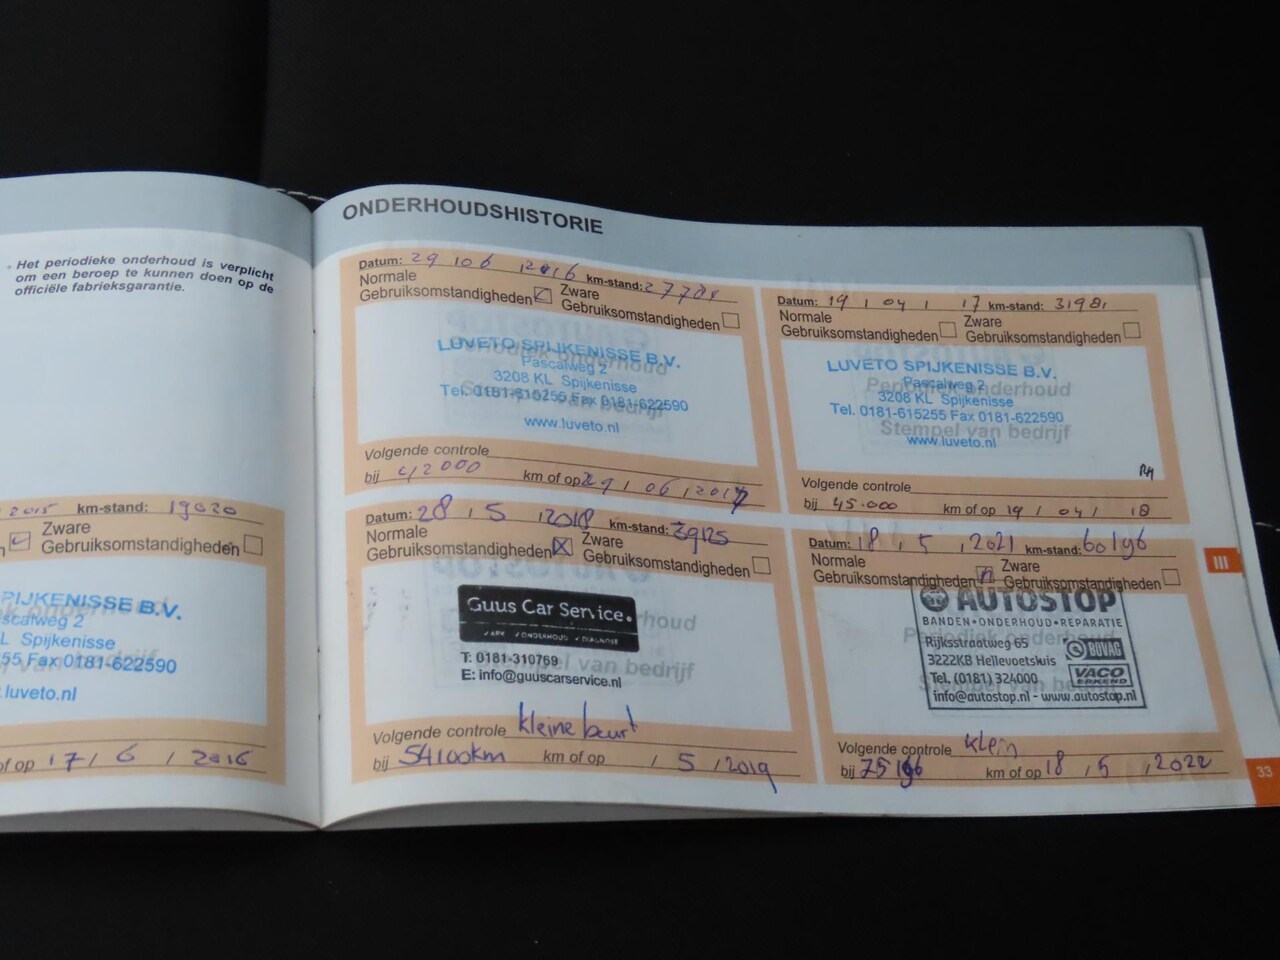 • Het periodieke onderhoud is verplicht
om een beroep te kunnen doen op de
officiële fabrieksgarantie.
2015 km-stand: 19020
Zware
Gebruiksomstandigheden
PIJKENISSE B.V.
scalweg 2
L Spijkenisse
55 Fax 0181-622590
.luveto.nl
of op 17 / 6 / 2016
ONDERHOUDSHISTORIE
Datum: 29 / 06 / 2016 km-stand:
Normale
Gebruiksomstandigheden
Zware
Gebruiksomstandigheden
LUVETO SPIJKENISSE B.V.
Pascalweg 2
3208 KL Spijkenisse
Tel. 0181-615255 Fax 0181-622590
www.luveto.nl
Volgende controle
bij 42000 km of op 29 / 06 / 2017
Datum: 19 / 04 / 17 km-stand: 31981
Normale
Gebruiksomstandigheden
Zware
Gebruiksomstandigheden
LUVETO SPIJKENISSE B.V.
Pascalweg 2
Periodiek onderhoud
3208 KL Spijkenisse
Tel. 0181-615255 Fax 0181-622590
Stempel van bedrijf
www.luveto.nl
Volgende controle
bij 45.000 km of op 19 / 04 / 18
Datum: 28 / 5 / 2018 km-stand: 39125
Normale
Gebruiksomstandigheden
Zware
Gebruiksomstandigheden
Guus Car Service.
✓APK ✓ONDERHOUD ✓DIAGNOSE
T: 0181-310769
E: info@guuscarservice.nl
Volgende controle kleine beurt
bij 54100km km of op / 5 / 2019
Datum: 18 / 5 / 2021 km-stand: 60196
Normale
Gebruiksomstandigheden
Zware
Gebruiksomstandigheden
AUTOSTOP
BANDEN•ONDERHOUD•REPARATIE
Rijksstraatweg 65
3222KB Hellevoetsluis
Tel. (0181) 324000
info@autostop.nl - www.autostop.nl
BOVAG
VACO
ERKEND
Volgende controle klein
bij 75196 km of op 18 / 5 / 2022
III
33